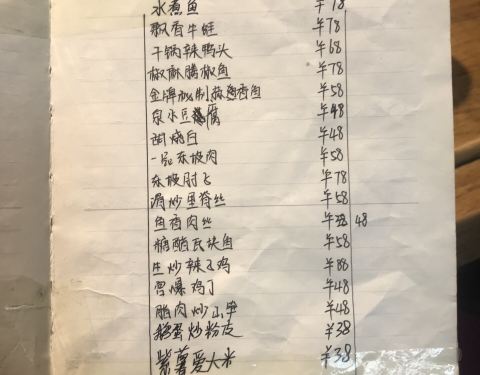 水煮鱼 ¥78
飘香牛蛙 ¥78
干锅辣鸭头 ¥68
椒麻腾椒鱼 ¥78
金牌秘制蒜香鱼 ¥58
泉水豆腐 ¥48
烧白 ¥48
一品东坡肉 ¥58
东坡肘子 ¥78
滑炒里脊丝 ¥58
鱼香肉丝 48
糖醋瓦块鱼 ¥58
生炒辣子鸡 ¥88
宫爆鸡丁 ¥48
腊肉炒山笋 ¥48
鹅蛋炒粉皮 ¥38
紫薯爱大米 ¥38